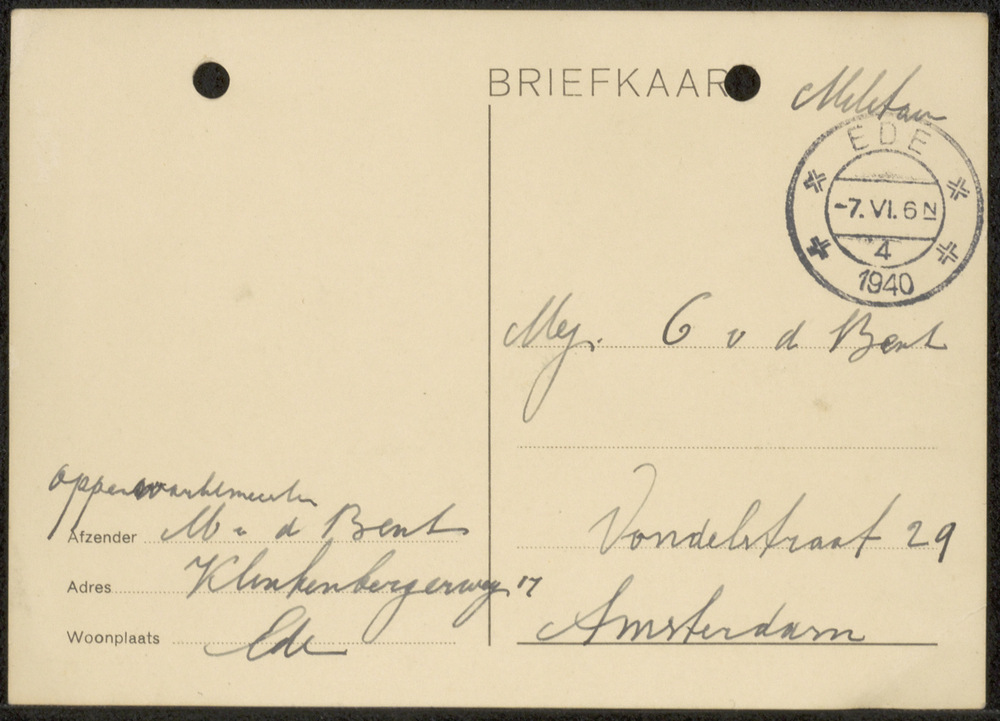 BRIEFKAAR
Militair
EDE
-7. VI. 6 N
4
1940
Mej. G v d Bent
Vondelstraat 29
Amsterdam
opperwachtmeester
Afzender M v d Bent
Adres Klinkenbergerweg 17
Woonplaats Ede